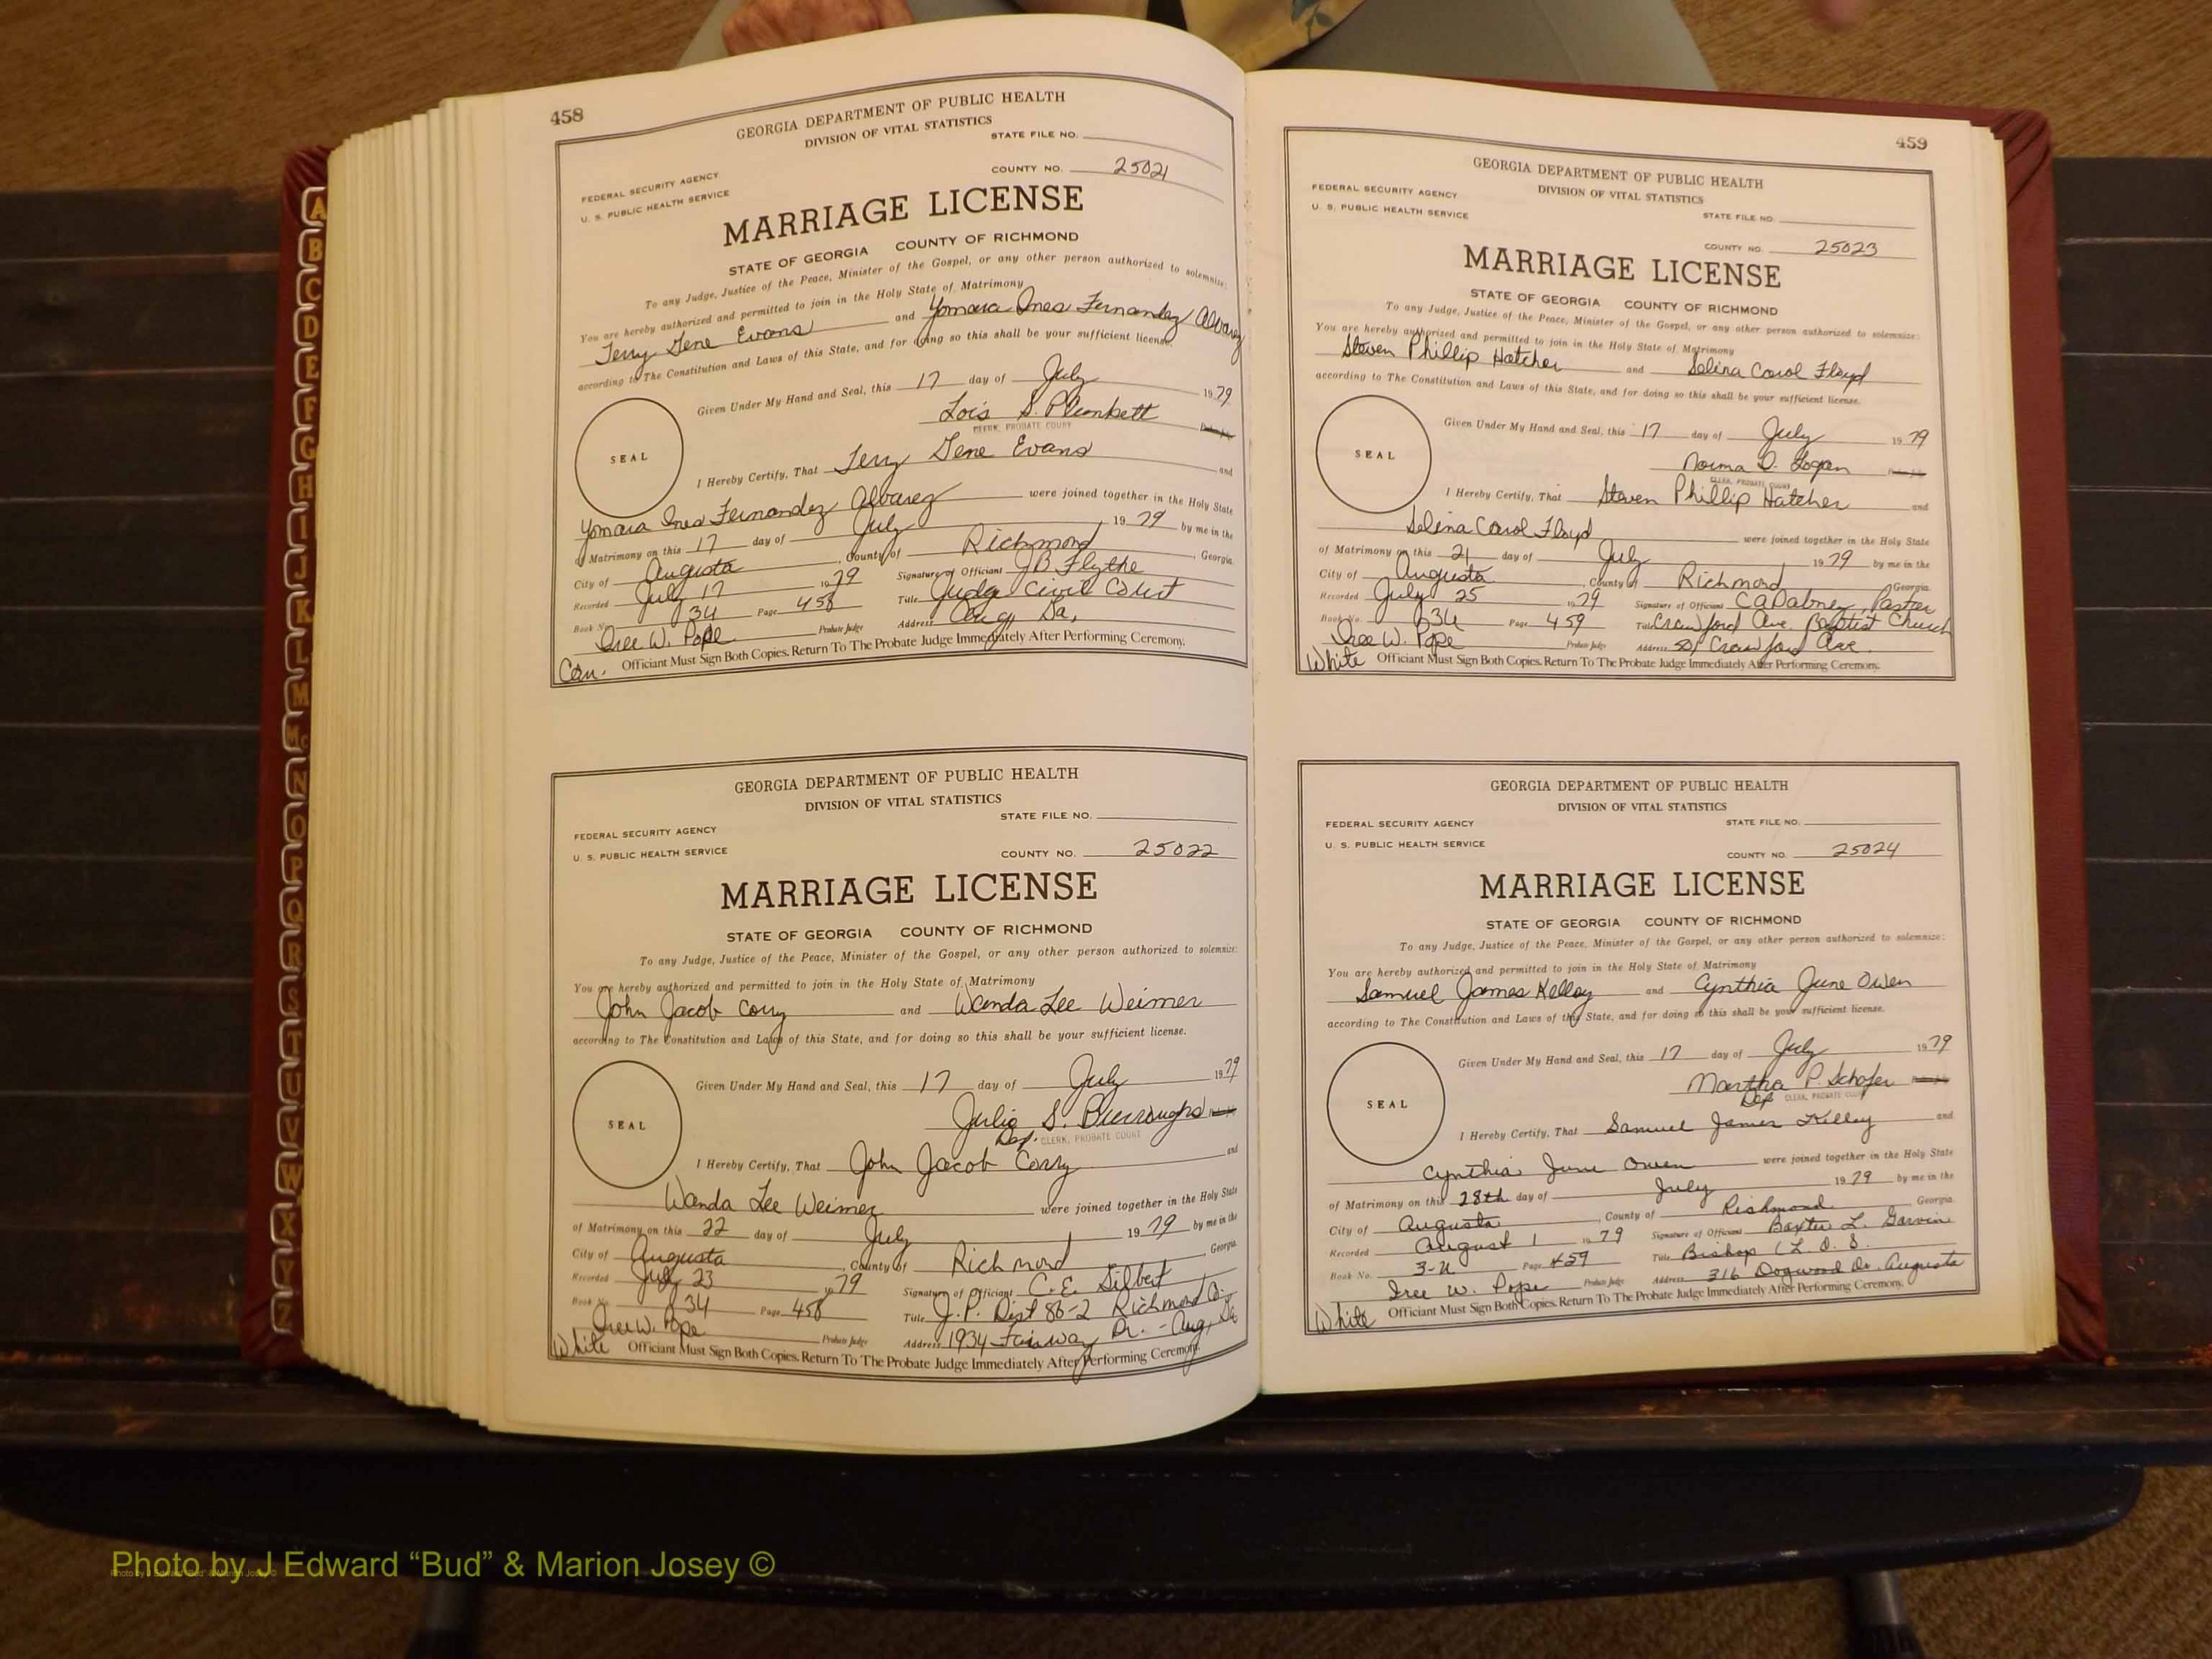 458
GEORGIA DEPARTMENT OF PUBLIC HEALTH
DIVISION OF VITAL STATISTICS
STATE FILE NO.
COUNTY NO. 25021
FEDERAL SECURITY AGENCY
U. S. PUBLIC HEALTH SERVICE
MARRIAGE LICENSE
STATE OF GEORGIA COUNTY OF RICHMOND
To any Judge, Justice of the Peace, Minister of the Gospel, or any other person authorized to solemnize:
You are hereby authorized and permitted to join in the Holy State of Matrimony
Terry Gene Evans and Yomara Ines Fernandez Alvarez
according to The Constitution and Laws of this State, and for doing so this shall be your sufficient license.
Given Under My Hand and Seal, this 17 day of July 1979
Lois S. Plunkett
CLERK, PROBATE COURT
SEAL
I Hereby Certify, That Terry Gene Evans and
Yomara Ines Fernandez Alvarez were joined together in the Holy State
of Matrimony on this 17 day of July 1979 by me in the
City of Augusta, County of Richmond, Georgia.
Recorded July 17 1979 Signature of Officiant JB Flythe
Book No. 34 Page 458 Title Judge Civil Court
Iree W. Pope Probate Judge Address Aug, Ga,
Cau. Officiant Must Sign Both Copies. Return To The Probate Judge Immediately After Performing Ceremony.
GEORGIA DEPARTMENT OF PUBLIC HEALTH
DIVISION OF VITAL STATISTICS
STATE FILE NO.
FEDERAL SECURITY AGENCY
U. S. PUBLIC HEALTH SERVICE
COUNTY NO. 25022
MARRIAGE LICENSE
STATE OF GEORGIA COUNTY OF RICHMOND
To any Judge, Justice of the Peace, Minister of the Gospel, or any other person authorized to solemnize:
You are hereby authorized and permitted to join in the Holy State of Matrimony
John Jacob Corry and Wanda Lee Weimer
according to The Constitution and Laws of this State, and for doing so this shall be your sufficient license.
Given Under My Hand and Seal, this 17 day of July 1979
Julia S. Burroughs
Dep. CLERK, PROBATE COURT
SEAL
I Hereby Certify, That John Jacob Corry and
Wanda Lee Weimer were joined together in the Holy State
of Matrimony on this 22 day of July 1979 by me in the
City of Augusta, County of Richmond, Georgia.
Recorded July 23 1979 Signature of Officiant C. E. Gilbert
Book No. 34 Page 458 Title J.P. Dist 86-2 Richmond Co.
Iree W. Pope Probate Judge Address 1934 Fairway Dr. - Aug, Ga
White Officiant Must Sign Both Copies. Return To The Probate Judge Immediately After Performing Ceremony.
459
GEORGIA DEPARTMENT OF PUBLIC HEALTH
DIVISION OF VITAL STATISTICS
FEDERAL SECURITY AGENCY
U. S. PUBLIC HEALTH SERVICE
STATE FILE NO.
COUNTY NO. 25023
MARRIAGE LICENSE
STATE OF GEORGIA COUNTY OF RICHMOND
To any Judge, Justice of the Peace, Minister of the Gospel, or any other person authorized to solemnize:
You are hereby authorized and permitted to join in the Holy State of Matrimony
Steven Phillip Hatcher and Selina Carol Floyd
according to The Constitution and Laws of this State, and for doing so this shall be your sufficient license.
Given Under My Hand and Seal, this 17 day of July 1979
Norma D. Logan
CLERK, PROBATE COURT
SEAL
I Hereby Certify, That Steven Phillip Hatcher and
Selina Carol Floyd were joined together in the Holy State
of Matrimony on this 21 day of July 1979 by me in the
City of Augusta, County of Richmond Georgia.
Recorded July 25 1979 Signature of Officiant CA Dabney, Pastor
Book No. 34 Page 459 Title Crawford Ave. Baptist Church
Iree W. Pope Probate Judge Address 507 Crawford Ave.
White Officiant Must Sign Both Copies. Return To The Probate Judge Immediately After Performing Ceremony.
GEORGIA DEPARTMENT OF PUBLIC HEALTH
DIVISION OF VITAL STATISTICS
FEDERAL SECURITY AGENCY
STATE FILE NO.
U. S. PUBLIC HEALTH SERVICE
COUNTY NO. 25024
MARRIAGE LICENSE
STATE OF GEORGIA COUNTY OF RICHMOND
To any Judge, Justice of the Peace, Minister of the Gospel, or any other person authorized to solemnize:
You are hereby authorized and permitted to join in the Holy State of Matrimony
Samuel James Kelley and Cynthia June Owen
according to The Constitution and Laws of this State, and for doing so this shall be your sufficient license.
Given Under My Hand and Seal, this 17 day of July 1979
Martha P. Schafer
Dep CLERK, PROBATE COURT
SEAL
I Hereby Certify, That Samuel James Kelley and
Cynthia June Owen were joined together in the Holy State
of Matrimony on this 28th day of July 1979 by me in the
City of Augusta, County of Richmond, Georgia.
Recorded August 1 1979 Signature of Officiant Baxter L. Garvin
Book No. 3-U Page 459 Title Bishop (L. D. S.
Iree W. Pope Probate Judge Address 316 Dogwood Dr. Augusta
White Officiant Must Sign Both Copies. Return To The Probate Judge Immediately After Performing Ceremony.
A
B
C
D
E
F
G
H
I
J
K
L
M
Mc
N
O
P
Q
R
S
T
U
V
W
X
Y
Z
Photo by J Edward “Bud” & Marion Josey ©